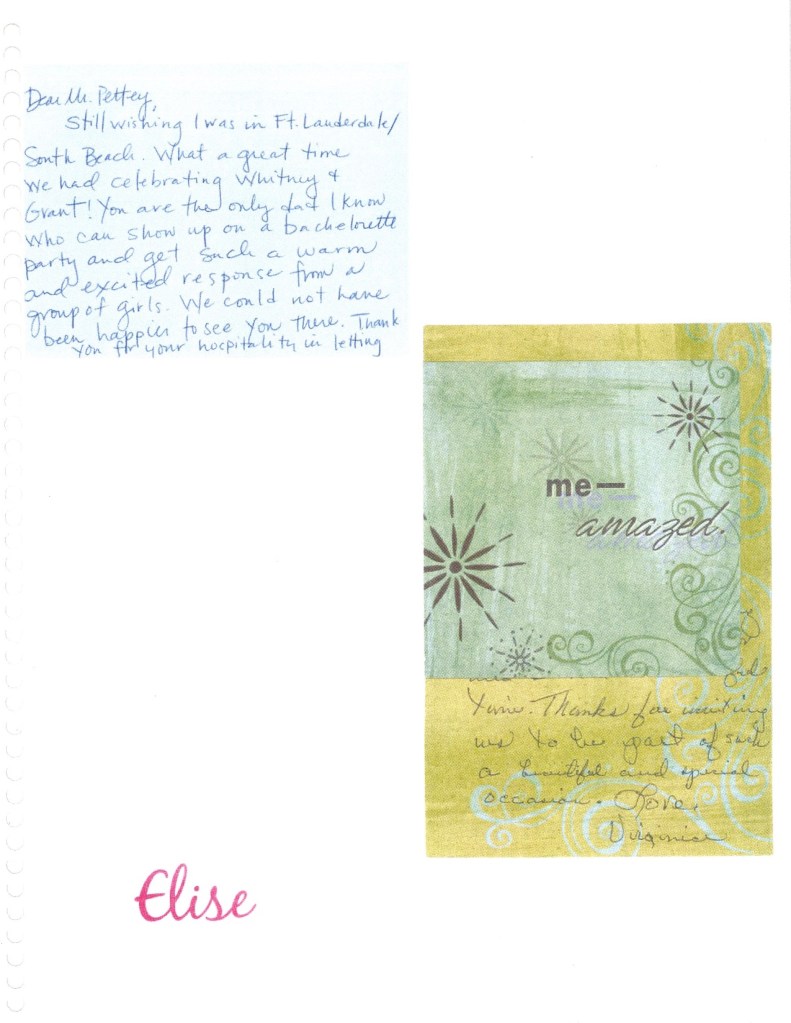 Dear Mr. Pettey,
Still wishing I was in Ft. Lauderdale/
South Beach. What a great time
we had celebrating Whitney &
Grant! You are the only dad I know
who can show up on a bachelorette
party and get such a warm
and excited response from a
group of girls. We could not have
been happier to see you there. Thank
you for your hospitality in letting
me—
amazed.
time. Thanks for inviting
us to be part of such
a beautiful and special
occasion. Love,
Virginia
Elise